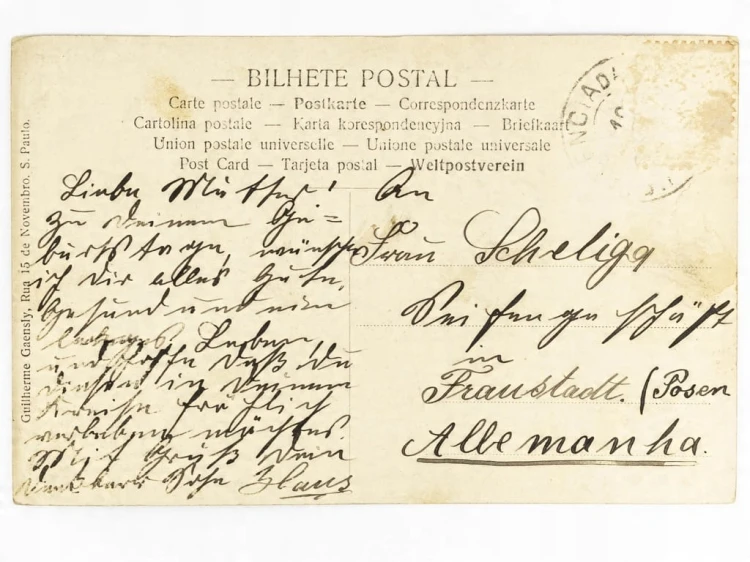 — BILHETE POSTAL —
Carte postale — Postkarte — Correspondenzkarte
Cartolina postale — Karta korespondencyjna — Briefkaart
Union postale universelle — Unione postale universale
Post Card — Tarjeta postal — Weltpostverein
Guilherme Gaensly, Rua 15 de Novembro. S. Paulo.
Liebe Mutter!
Zu Deinem Ge=
burtstage, wünsche
ich Dir alles Gute,
Gesund und ein
Leben,
und hoffe daß Du
diesen in Deinem
Kreise fröhlich
verleben möchtes.
Mit Gruß Dein
Sohn Hans
An
Frau Scheliga
Seifengeschäft
in
Fraustadt. (Posen
Allemanha.